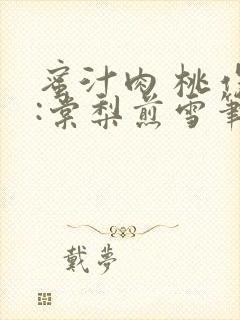 蜜汁肉桃作
:棠梨煎雪筆
戴夢